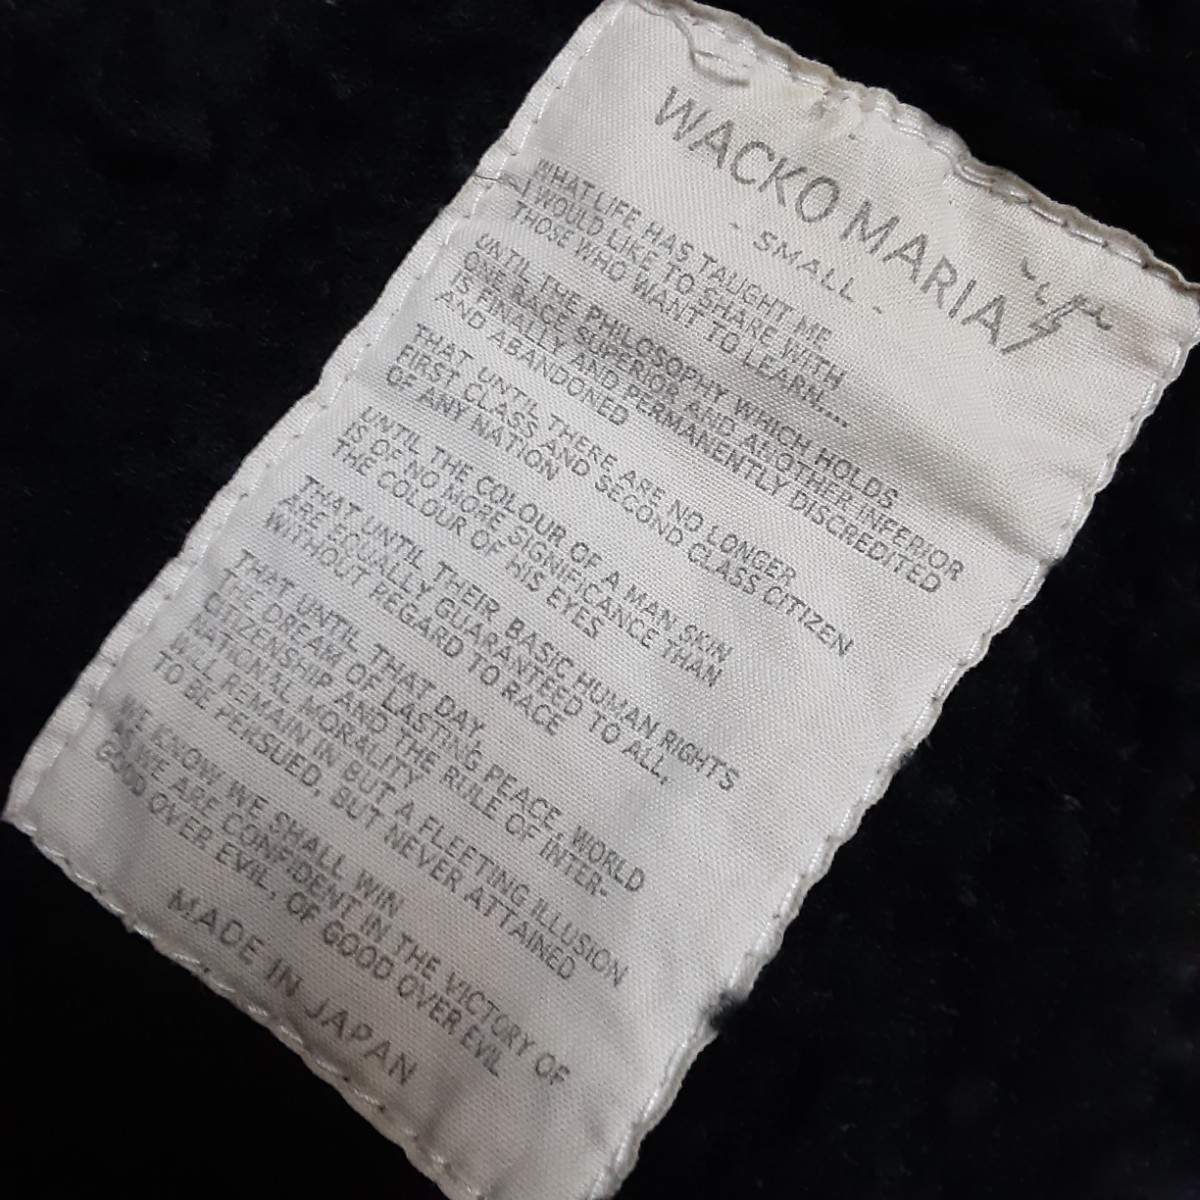 WACKO MARIA
- SMALL -
WHAT LIFE HAS TAUGHT ME
I WOULD LIKE TO SHARE WITH
THOSE WHO WANT TO LEARN...
UNTIL THE PHILOSOPHY WHICH HOLDS
ONE RACE SUPERIOR AND ANOTHER INFERIOR
IS FINALLY AND PERMANENTLY DISCREDITED
AND ABANDONED
THAT UNTIL THERE ARE NO LONGER
FIRST CLASS AND SECOND CLASS CITIZEN
OF ANY NATION
UNTIL THE COLOUR OF A MAN SKIN
IS OF NO MORE SIGNIFICANCE THAN
THE COLOUR OF HIS EYES
THAT UNTIL THEIR BASIC HUMAN RIGHTS
ARE EQUALLY GUARANTEED TO ALL,
WITHOUT REGARD TO RACE
THAT UNTIL THAT DAY
THE DREAM OF LASTING PEACE, WORLD
CITIZENSHIP AND THE RULE OF INTER-
NATIONAL MORALITY
WILL REMAIN IN BUT A FLEETING ILLUSION
TO BE PERSUED, BUT NEVER ATTAINED
WE KNOW WE SHALL WIN
AS WE ARE CONFIDENT IN THE VICTORY OF
GOOD OVER EVIL, OF GOOD OVER EVIL
MADE IN JAPAN